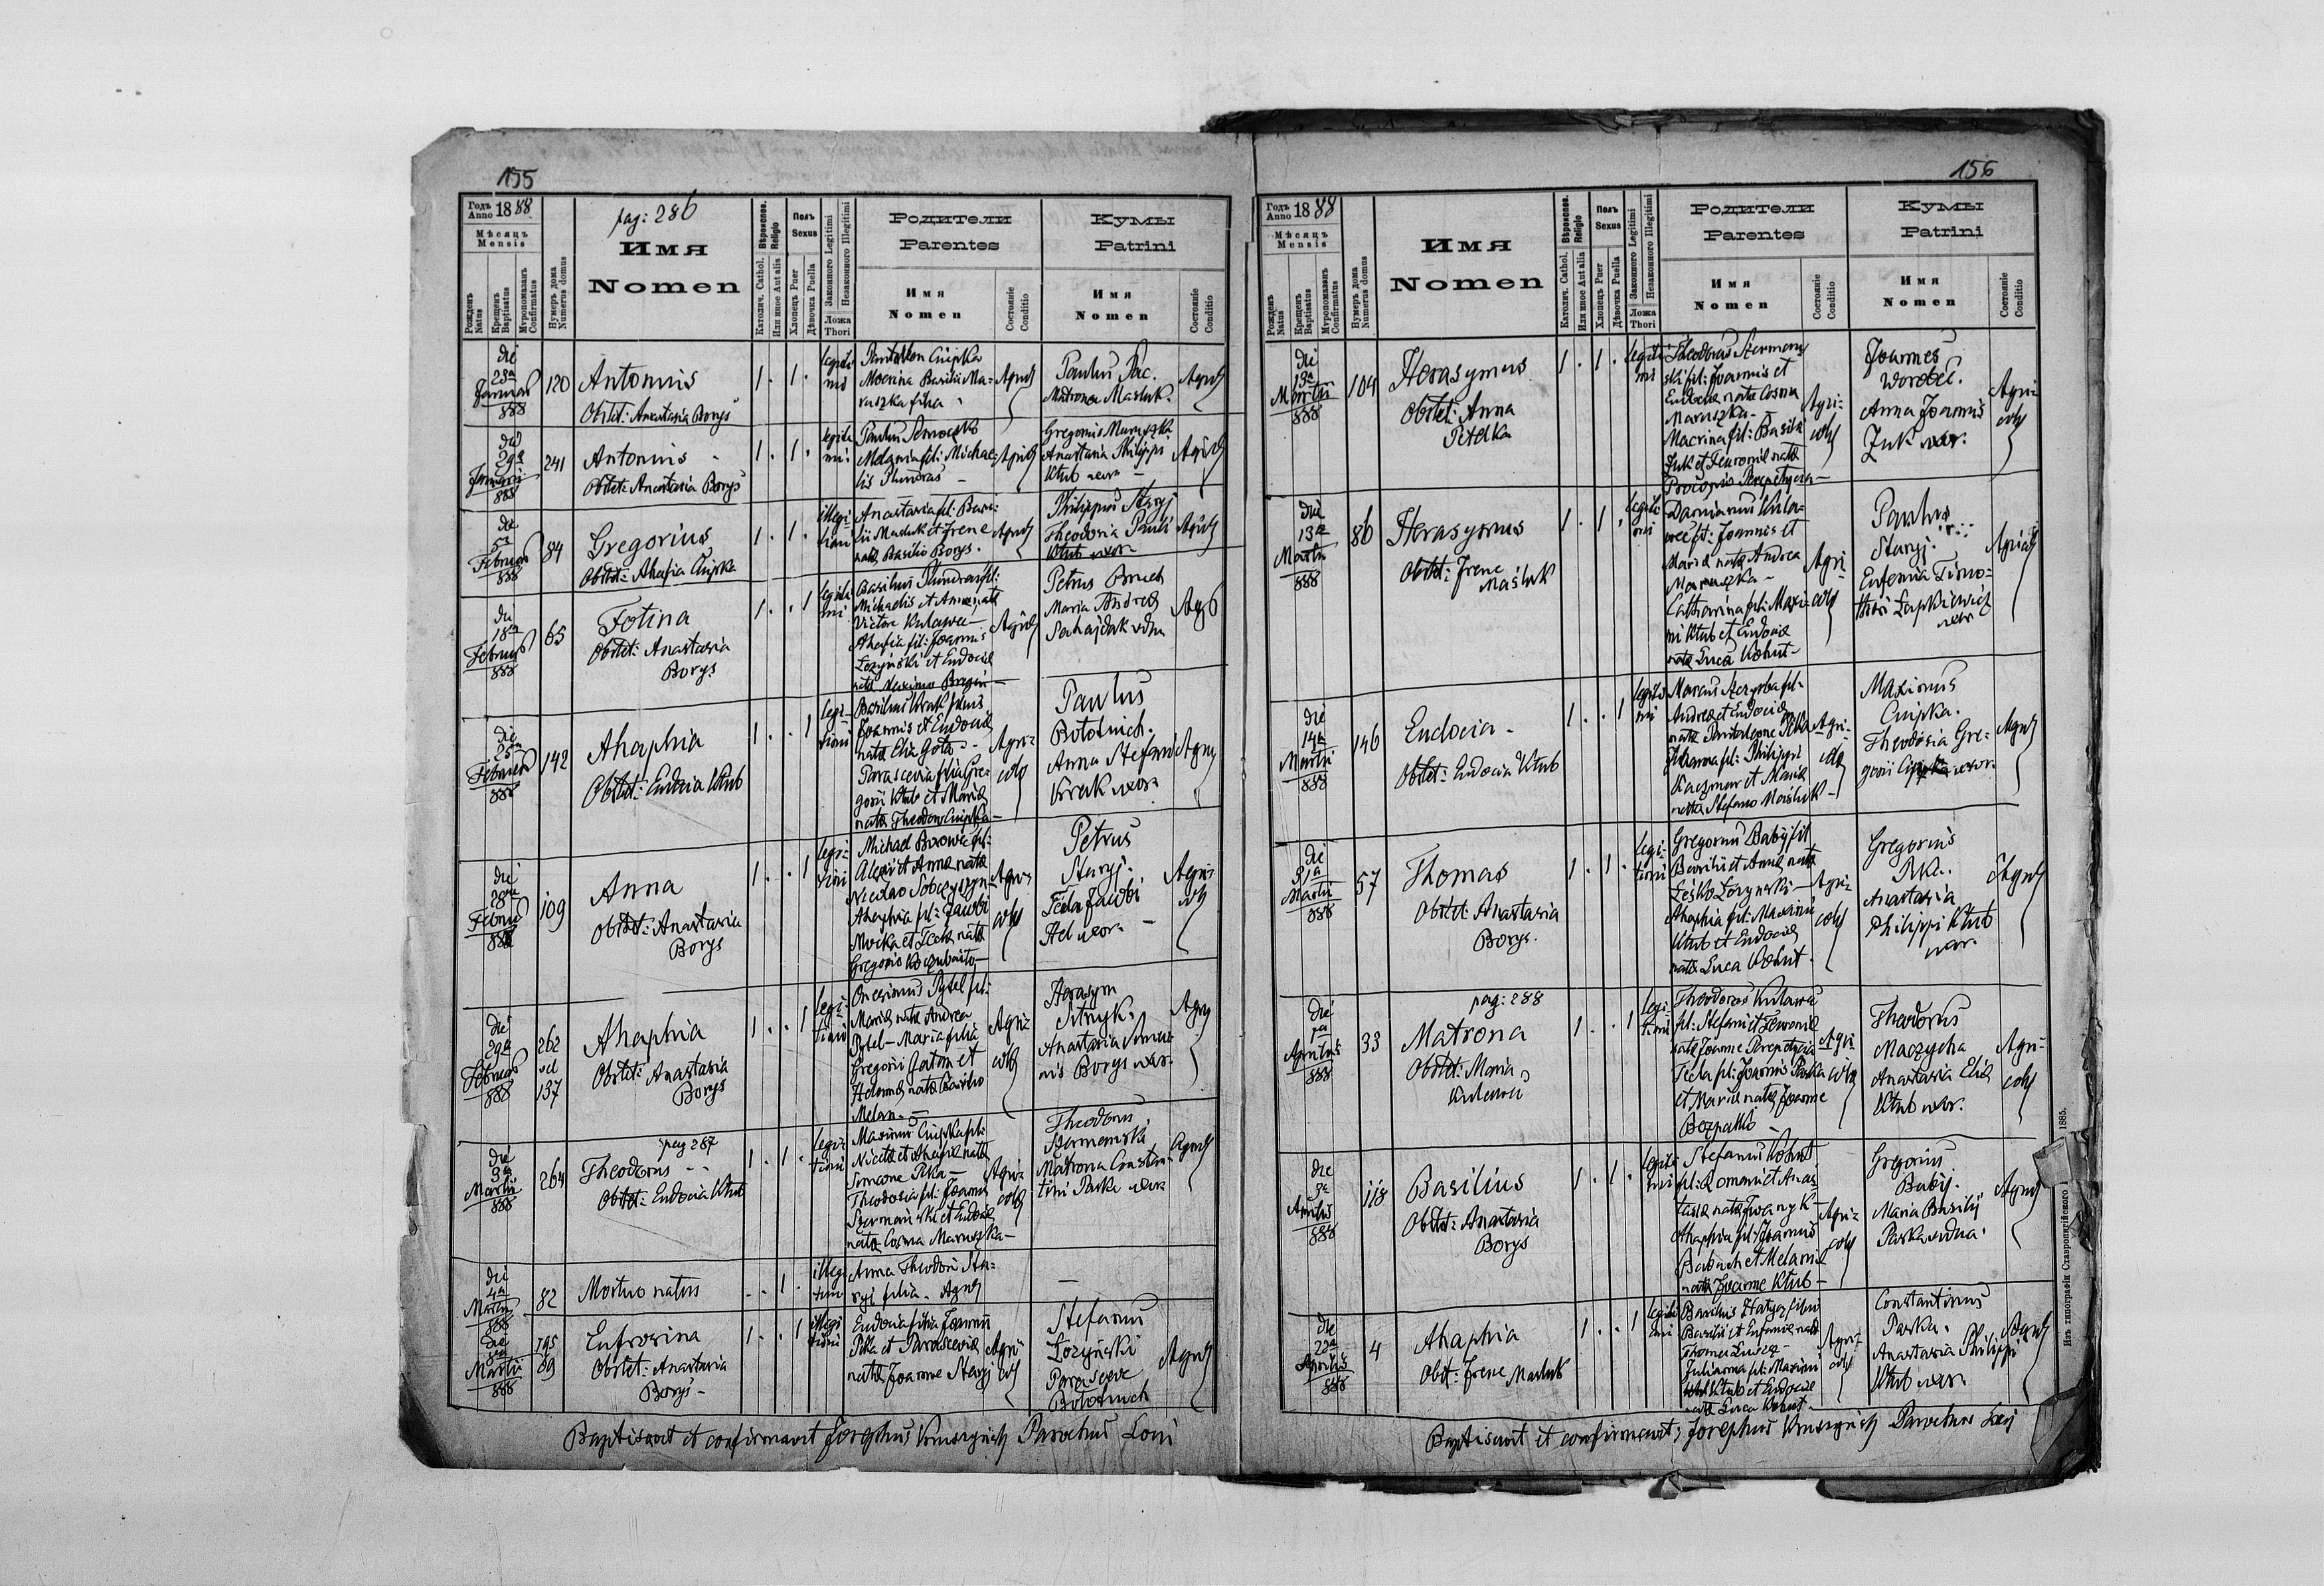 155
Годъ Anno 1888
pag: 286
Мѣсяцъ
Mensis
Рожденъ Natus
Крещенъ Baptisatus
Мѵропомазанъ Confirmatus
Нумеръ дома Numerus domus
Имя
Nomen
Вѣроиспов. Religio
Католич. Cathol.
Или иное Aut alia
Полъ Sexus
Хлопецъ Puer
Дѣвочка Puella
Законного Legitimi
Незаконного Illegitimi
Ложа Thori
Родители
Parentes
Имя
Nomen
Состояніе Conditio
Кумы
Patrini
Имя
Nomen
Состояніе Conditio
die 23a Januar 888
120
Antonius
Obstet: Anastasia Borys
1 . 1 .
legiti
mi
Pantaleon Cüpka
Macrina Basilii Ma-
ruszka filia
Agric
Paulus Pac.
Matrona Masluk.
Agric
die 29a Januarii 888
241
Antonius
Obstet: Anastasia Borys
1 . 1 .
legiti
mi
Paulus
Melania fil: Michae-
lis Plundras
Agric
Gregorius Maruszka
Anastasia Philippi
Ktub uxor
Agric
die 5a Februar 888
84
Gregorius
Obstet: Ahafia Cüpka
1 . 1 .
illegi
timi
Anastasia fil: Basi-
lii Masluk et Irene
nata Basilio Borys.
Agric
Philippus Staryj
Theodosia Pauli
Ktub uxor
Agric
die 18a Februar 888
65
Fotina
Obstet: Anastasia
Borys
1 . . 1
legiti
mi
Basilius Plundras fil:
Michaelis et Annae nata
Victore Kulawec
Ahafia fil: Joannis
Łozyński et Eudocia
nata Maximo
Agric
Petrus
Maria Andrea
Sahajdak vdua
Agr
die 25a Februar 888
142
Ahaphia
Obstet: Eudocia Ktub
1 . . 1
legi-
timi
Basilius Krak filius
Joannis et Eudocia
nata Elia Gota
Parascevia filia Gre-
gorii Ktub et Maria
nata Theodoro Cüpka
Agri-
colae
Paulus
Bototnich.
Anna Stefani
Krak uxor
Agric
die 28a Februar 888
109
Anna
Obstet: Anastasia
Borys
1 . . 1
legi-
timi
Michael Borowiec fil:
Alexii et Anna nata
Nicolao Sobczyszyn
Ahaphia fil: Jacobi
Mocka et Tecla nata
Gregorio
Agri-
colae
Petrus
Staryj.
Tecla Jacobi
uxor
Agri-
colae
die 29a Februar 888
262
vel
137
Ahaphia
Obstet: Anastasia
Borys
1 . . 1
legi-
timi
Onesimus Pytel fil:
Maria nata Andrea
Pytel - Maria filia
Gregorii et
nata Basilio
Melan
Agri-
colae
Herasym
Sitnyk.
Anastasia
Borys uxor
Agric
die 3a Martii 888
264
pag 287
Theodorus
Obstet: Eudocia Ktub
1 . 1 .
legi-
timi
Maximus Cüpka fil:
Nicetae et Ahafia nata
Simeone Pika
Theodosia fil: Joannis
Szermański et Eudocia
nata Cosma Maruszka
Agri-
colae
Theodorus
Szermański
Matrona Constan-
tini Paska uxor
Agric
die 4a Martii 888
82
Mortuo natus
. . 1 .
illegi
timi
Anna Theodori Sta-
ryj filia. Agric
die Martii 888
195
89
Eufrosina
Obstet: Anastasia
Borys
1 . . 1
illegi
timi
Eudocia filia Joannis
Pika et Parascevia
nata Joanne Staryj
Agri
colae
Stefanus
Łozyński
Parasceve
Bototnich
Agric
Baptisavit et confirmavit Josephus Parochus Loci
156
Годъ Anno 1888
Мѣсяцъ
Mensis
Рожденъ Natus
Крещенъ Baptisatus
Мѵропомазанъ Confirmatus
Нумеръ дома Numerus domus
Имя
Nomen
Вѣроиспов. Religio
Католич. Cathol.
Или иное Aut alia
Полъ Sexus
Хлопецъ Puer
Дѣвочка Puella
Законного Legitimi
Незаконного Illegitimi
Ложа Thori
Родители
Parentes
Имя
Nomen
Состояніе Conditio
Кумы
Patrini
Имя
Nomen
Состояніе Conditio
die 13a Martii 888
104
Herasymus
Obstet: Anna
Petelka
1 . 1 .
legiti
mi
Theodorus Szerman-
ski fil: Joannis et
Eudocia nata Cosma
Maruszka
Macrina fil: Basilii
Żuk et Fewronia nata
Procopio Perepetycza
Agri-
colae
Joannes
Worobel.
Anna Joannis
Żuk uxor.
Agri-
colae
die 13a Martii 888
86
Herasymus
Obstet: Irene
Masluk
1 . 1 .
legiti
mi
Damianus Kula-
wec fil: Joannis et
Maria nata Andrea
Maruszka
Catharina fil: Maxi-
mi Ktub et Eudocia
nata Luca Kohut
Agri-
colae
Paulus
Staryj.
Eufemia Timo-
thei Łapkiewicz
uxor
Agricolae
die 14a Martii 888
146
Eudocia
Obstet: Eudocia Ktub
1 . . 1
legiti
mi
Marcus Szczyrba fil:
Andrea et Eudocia
nata Pantaleone Pika
fil: Philippi
Kaczmar et Maria
nata Stefano Masluk
Agri-
colae
Maximus
Cüpka.
Theodosia Gre-
gorii Cüpka uxor.
Agric
die 31a Martii 888
57
Thomas
Obstet: Anastasia
Borys.
1 . 1 .
legi-
timi
Gregorius Babij fil
Basilii et Anna nata
Leśko Łozynski
Ahaphia fil: Maximi
Ktub et Eudocia
nata Luca Kohut.
Agri-
colae
Gregorius
Pika.
Anastasia
Philippi Ktub
uxor.
Agric
die Aprilis 888
33
pag: 288
Matrona
Obstet: Maria
Kulawec
1 . . 1
legi-
timi
Theodorus Kulawec
fil: Stefani et Fewronia
nata Joanne Perepetycza
Tecla fil: Joannis Paska
et Maria nata Joanne
Bezpalko
Agri-
colae
Theodorus
Maczycha
Anastasia Elia
Ktub uxor.
Agri-
colae
die Aprilis 888
118
Basilius
Obstet: Anastasia
Borys
1 . 1 .
legiti
mi
Stefanus Kohut
fil: Romani et Anas-
tasia nata Iwanyk
Ahaphia fil: Joannis
Babach et Melania
nata Joanne Ktub
Agri-
colae
Gregorius
Babij.
Maria Basilij
Paska vdua.
Agric
die 22a Aprilis 888
4
Ahaphia
Obst: Irene Masluk
1 . . 1
legiti
mi
Basilius filius
Basilii et Eufemia nata
Thoma
Julianna fil: Maximi
Ktub et Eudocia
nata Luca Kohut
Agri-
colae
Constantinus
Paska.
Anastasia Philippi
Ktub uxor
Agric
Baptisavit et confirmavit Josephus Parochus Loci
Изъ типографіи Ставропигійского 1885.